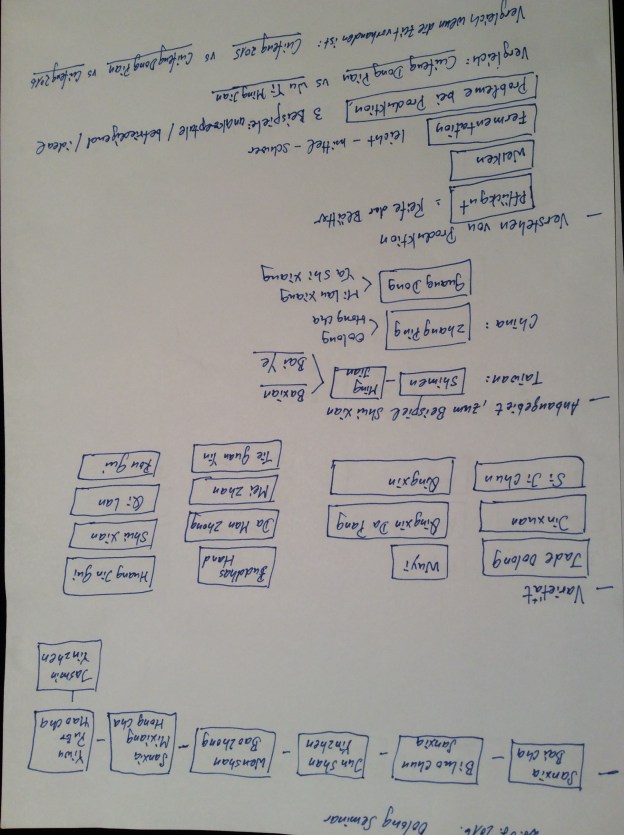 2016. Oolong Seminar
— Sanxia Bai Cha – Biluochun Sanxia – Jun Shan Yinzhen – Wenshan Baozhong – Sanxia Mixiang Hong Cha – Yiwu Pu Er Mao cha
Jasmin Yinzhen
— Varietät
Jade Oolong Wuyi Buddhas Hand Huang Jin Gui
Jinxuan Qingxin Da Pang Da Man Zhong Shui Xian
Si Ji Chun Qingxin Mei Zhan Qi Lan
Tie Guan Yin Rou Gui
— Anbaugebiet, zum Beispiel Shui Xian
Taiwan: Shimen – Ming Jian < Baxian
Bai Ye
China: Zhang Ping < Oolong
Hong Cha
Guang Dong < Mi Lan Xiang
Ya Shi Xiang
— Verstehen von Produktion
Pflückgut = Reife der Blätter
Welken
Fermentation leicht – mittel – schwer
Probleme bei Produktion, 3 Beispiele: unakzeptable / befriedigend / ideal
Vergleich: Cuifeng Dong Pian vs Wu Yi Ming Jian
Vergleich wenn die Zeit vorhanden ist: Cuifeng 2015 vs Cuifeng Dong Pian vs Cuifeng 2016